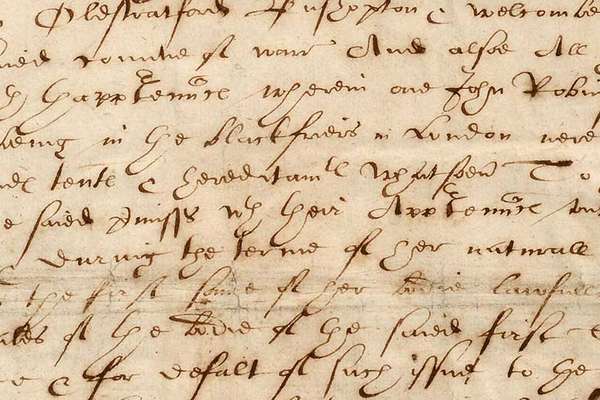 Oldstratford Bushopton & welcombe
countie of warr And alsoe All
thapptennces wherein one John Robin
being in the blackfriers in London nere
tente & hereditamte Whatsoeu To
saied pmisss wth their Apptennces
during the terme of her naturall
the first sonne of her bodie lawfull
of the bodie of the saied first
& for defalt of such issue to the